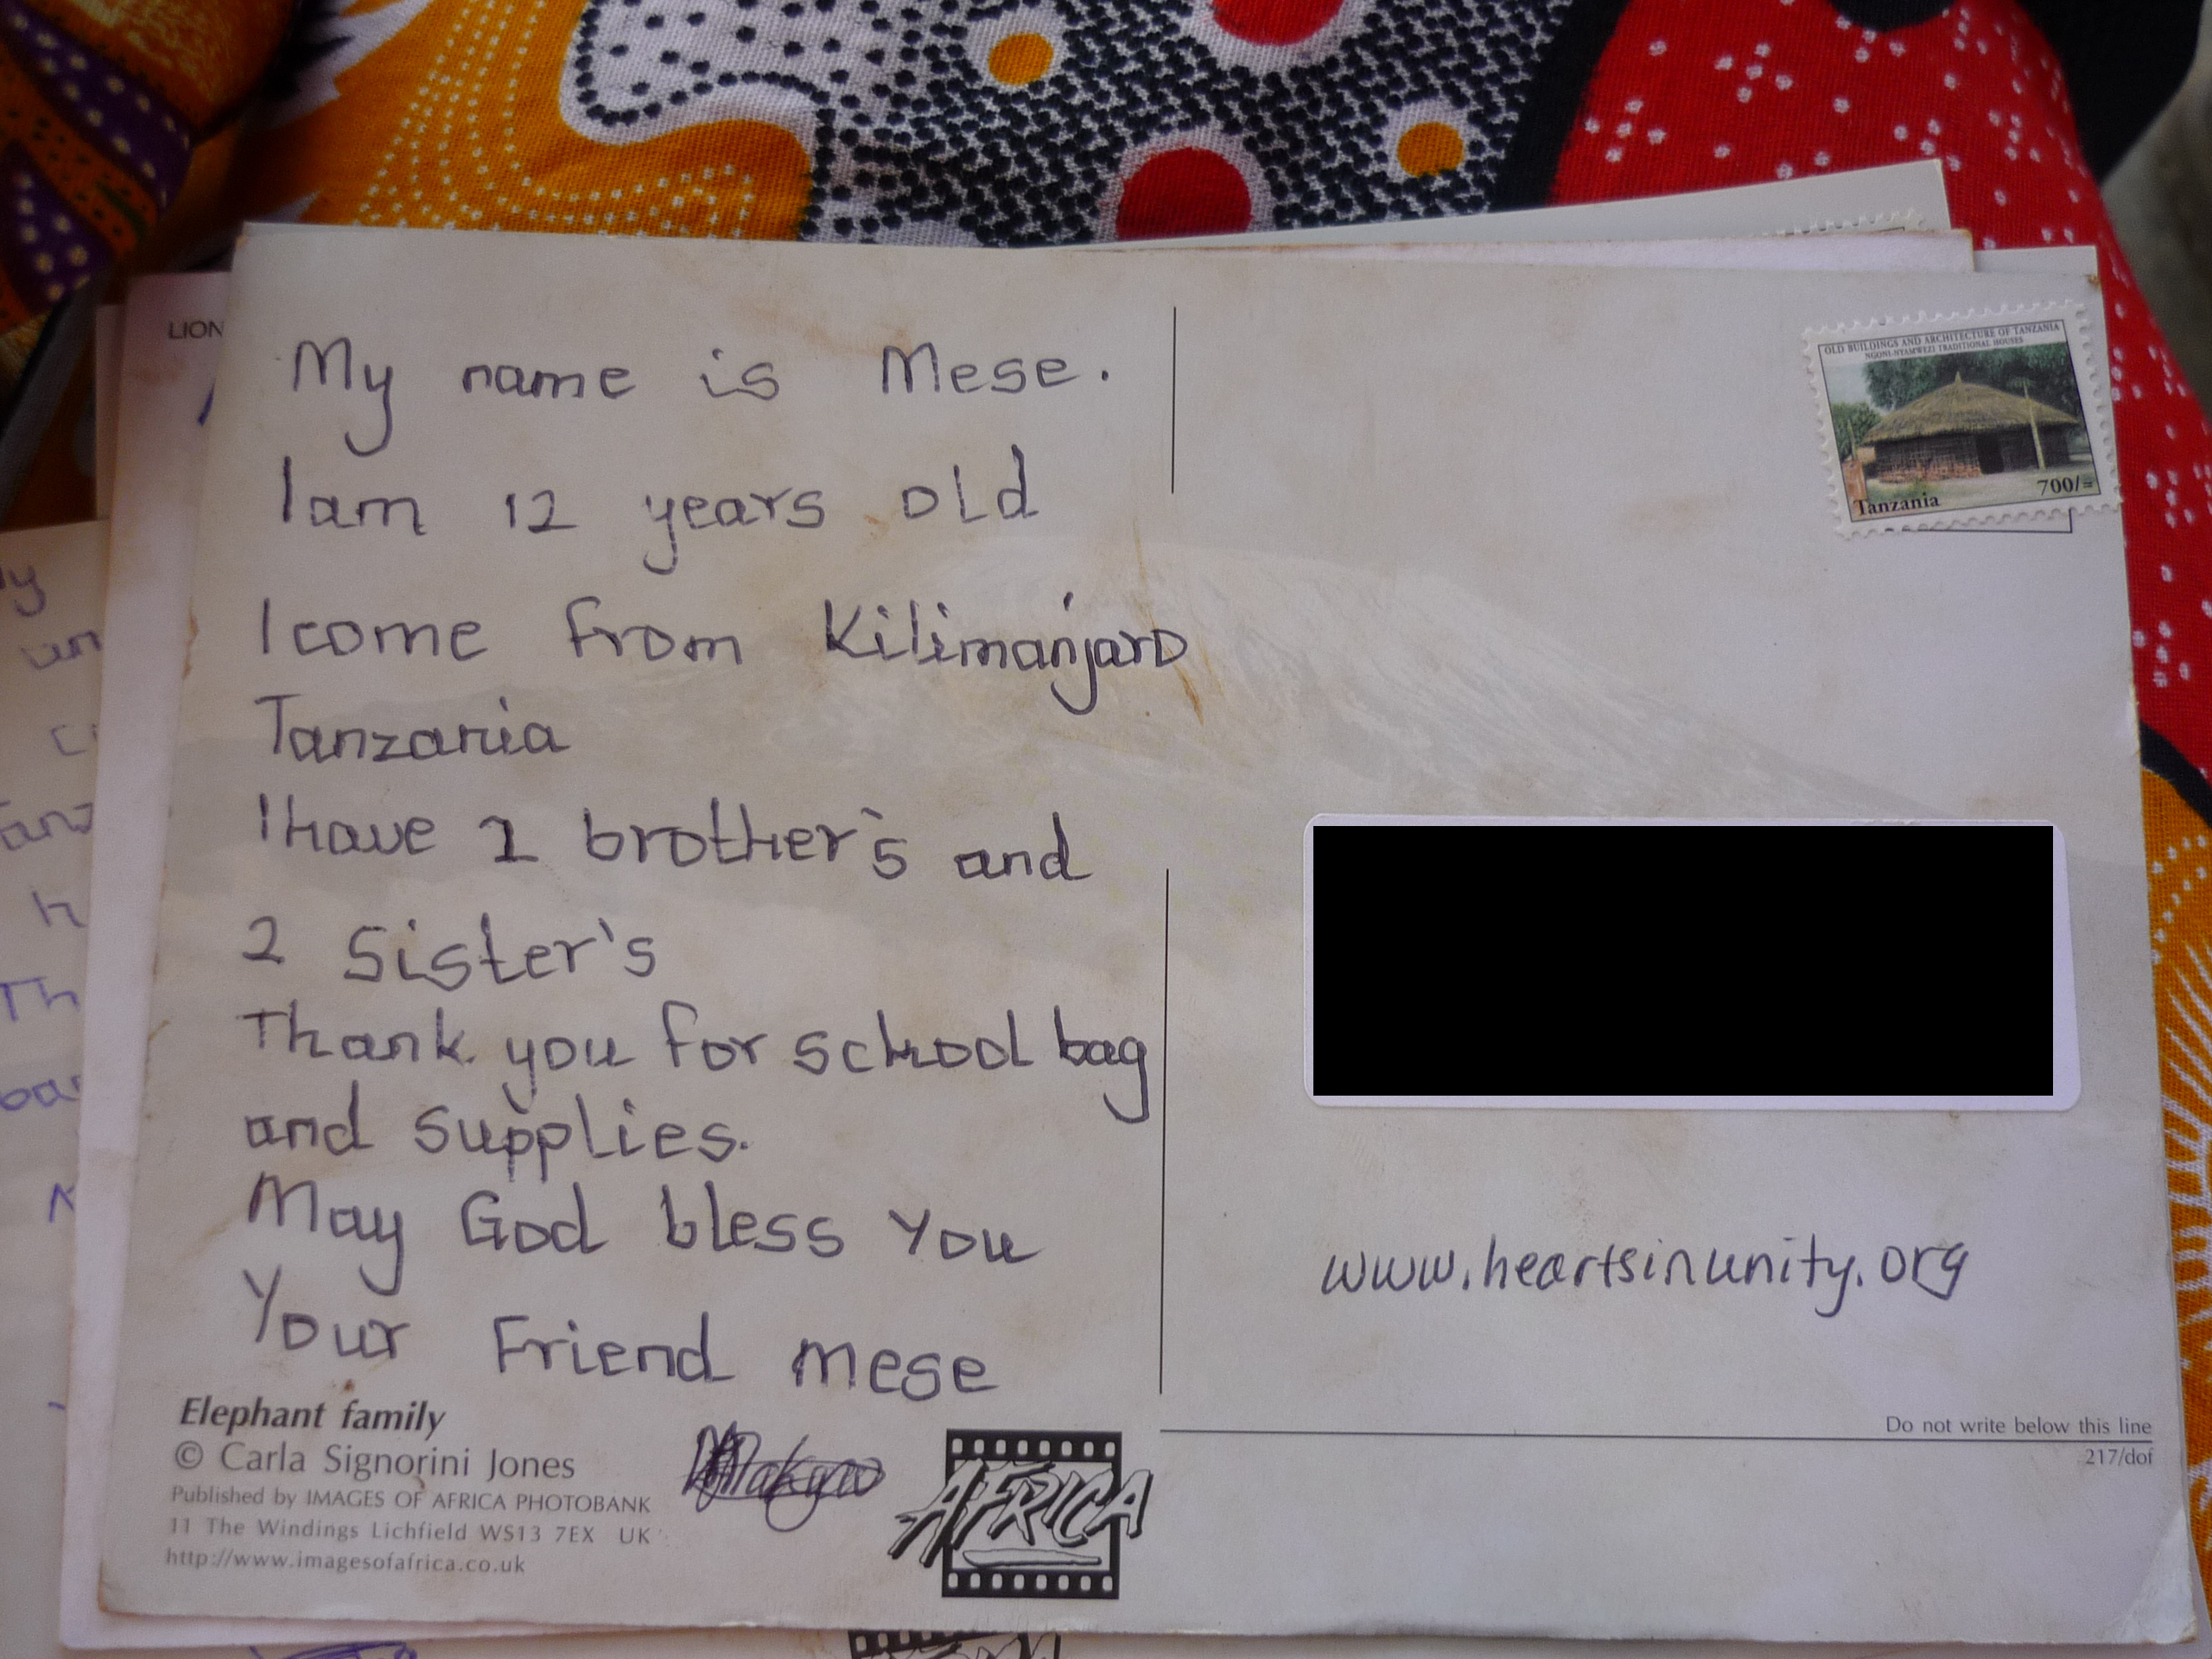 My name is Mese.
I am 12 years old
I come from Kilimanjaro
Tanzania
I have 2 brother's and
2 Sister's
Thank you for school bag
and supplies.
May God bless You
Your Friend mese
Elephant family
© Carla Signorini Jones
Published by IMAGES OF AFRICA PHOTOBANK
11 The Windings Lichfield WS13 7EX UK
http://www.imagesofafrica.co.uk
AFRICA
OLD BUILDINGS AND ARCHITECTURE OF TANZANIA
NGONI-NYAMWEZI TRADITIONAL HOUSES
700/=
Tanzania
www.heartsinunity.org
Do not write below this line
217/dof
LION
Th